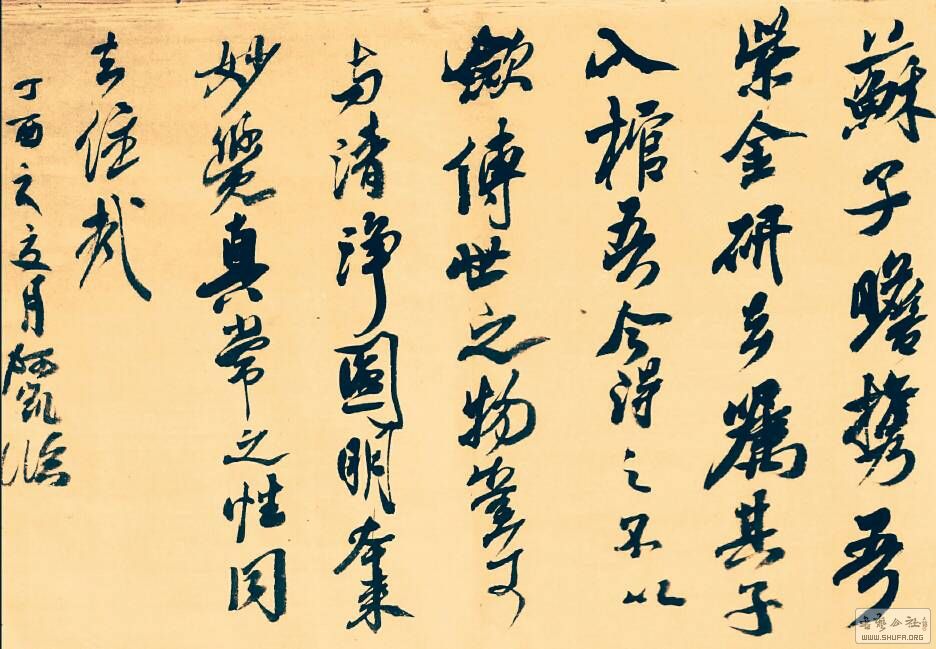 蘇子瞻携吾
紫金研去嘱其子
入棺吾今得之不以
歛傳世之物豈可
与清淨圓明本來
妙覺真常之性同
去住哉
丁酉之月阿凱臨
书艺公社
WWW.SHUFA.ORG